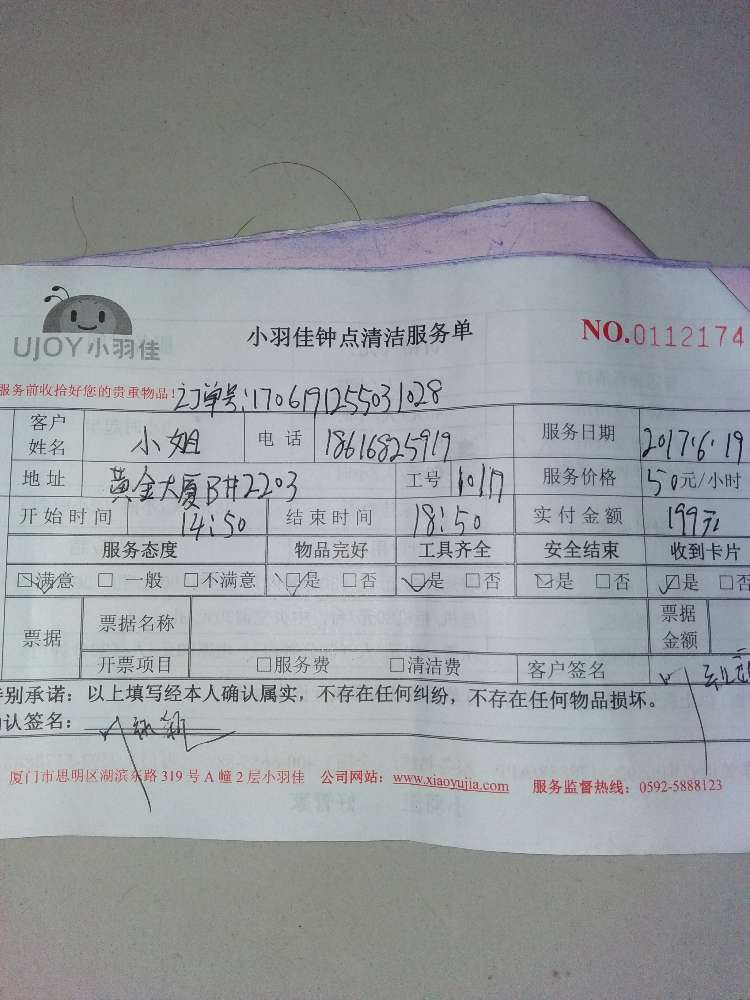 UJOY小羽佳
小羽佳钟点清洁服务单
NO.0112174
服务前收拾好您的贵重物品!
订单号:1706191255031028
客户姓名 小姐 电话 18616825919 服务日期 2017.6.19
地址 黄金大厦B#2203 工号 服务价格 50元/小时
开始时间 14:50 结束时间 18:50 实付金额 199元
服务态度 物品完好 工具齐全 安全结束 收到卡片
☑满意 □一般 □不满意 ☑是 □否 ☑是 □否 ☑是 □否 ☑是 □否
票据 票据名称 票据金额
开票项目 □服务费 □清洁费 客户签名
特别承诺:以上填写经本人确认属实,不存在任何纠纷,不存在任何物品损坏。
确认签名:
厦门市思明区湖滨东路319号A幢2层小羽佳 公司网站:www.xiaoyujia.com 服务监督热线:0592-5888123